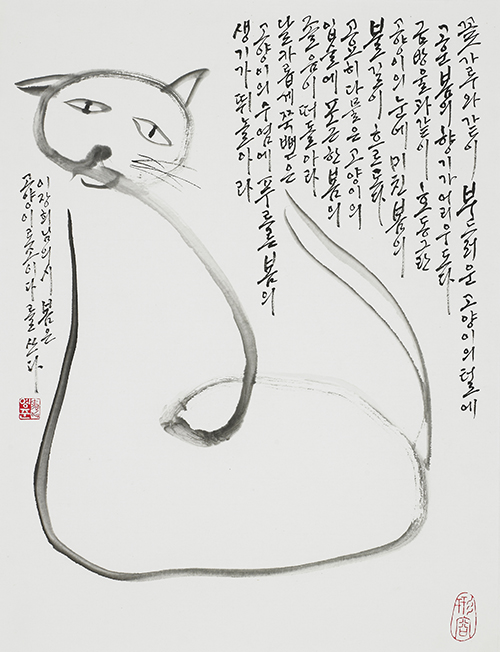 꽃가루와 같이 부드러운 고양이의 털에
고운 봄의 향기가 어리우도다
금방울과 같이 호동그란
고양이의 눈에 미친 봄의
불길이 흐르도다
고요히 다물은 고양이의
입술에 포근한 봄의
졸음이 떠돌아라
날카롭게 쭉 뻗은
고양이의 수염에 푸르른 봄의
생기가 뛰놀아라
이장희님의 시 봄은
고양이로소이다를 쓰다